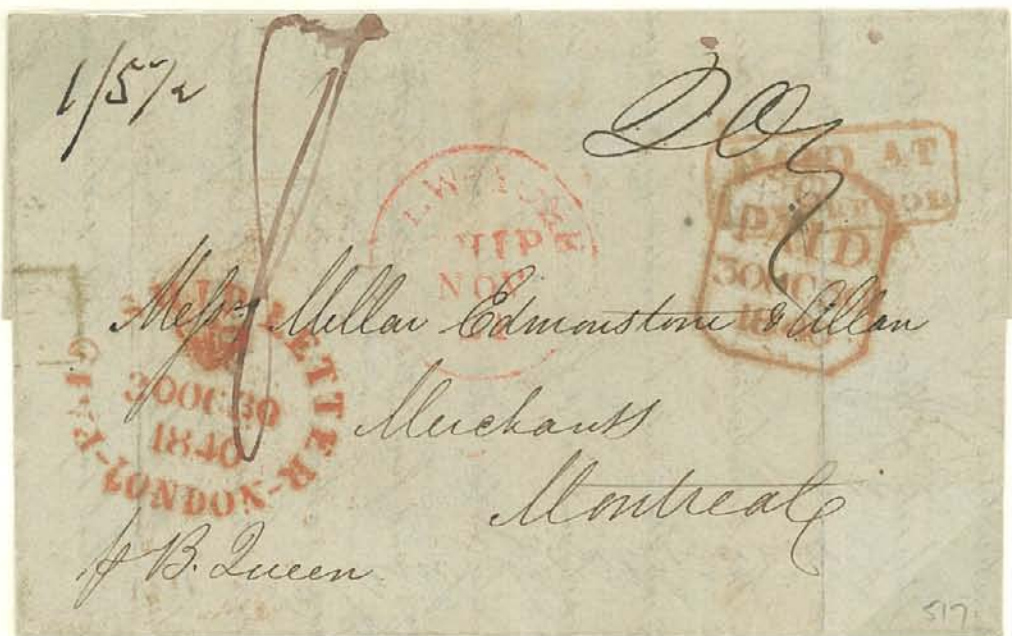 1/5½
20
PAID AT
PAID
30 OC 30
1840
NEW YORK
SHIP
NOV
SHIP LETTER
30 OC 30
1840
F·LONDON
Messrs Millar Edmonstone & Allan
Merchants
Montreal
p B. Queen
517.